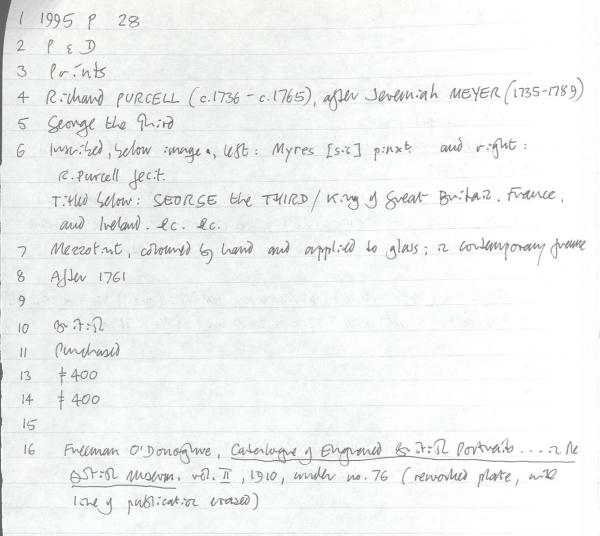 1 1995 P 28
2 P & D
3 Prints
4 Richard PURCELL (c.1736 - c.1765), after Jeremiah MEYER (1735-1789)
5 George the Third
6 Inscribed, below image, left: Myres [sic] pinxt. and right:
R. Purcell fecit.
Titled below: GEORGE the THIRD / King of Great Britain. France,
and Ireland. &c. &c.
7 Mezzotint, coloured by hand and applied to glass; in contemporary frame
8 After 1761
9
10 British
11 Purchased
13 £400
14 £400
15
16 Freeman O'Donoghue, Catalogue of Engraved British Portraits .... in the
British Museum, vol. II, 1910, under no. 76 (reworked plate, with
line of publication erased)